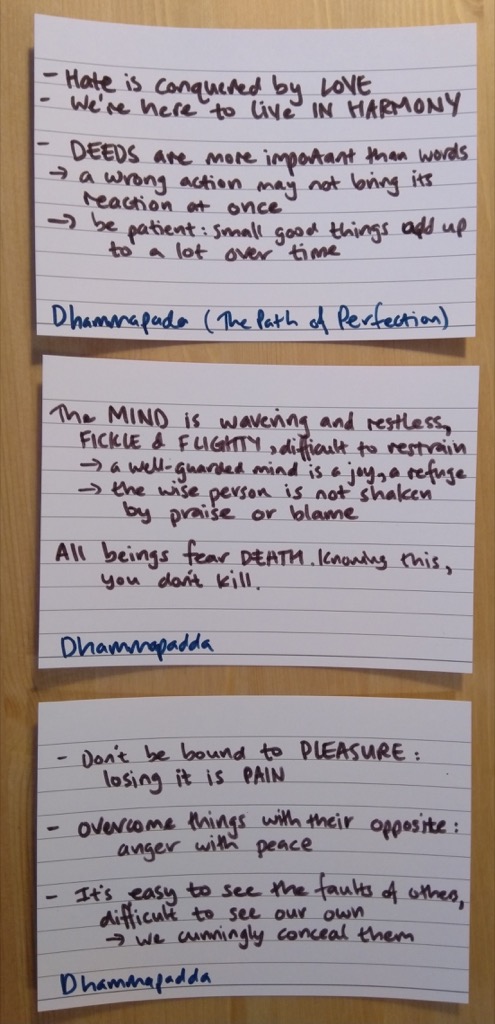 - Hate is conquered by LOVE
- We're here to live IN HARMONY
- DEEDS are more important than words
→ a wrong action may not bring its
reaction at once
→ be patient: small good things add up
to a lot over time
Dhammapada (The Path of Perfection)
The MIND is wavering and restless,
FICKLE & FLIGHTY, difficult to restrain
→ a well-guarded mind is a joy, a refuge
→ the wise person is not shaken
by praise or blame
All beings fear DEATH. Knowing this,
you don't kill.
Dhammapadda
- Don't be bound to PLEASURE:
losing it is PAIN
- overcome things with their opposite:
anger with peace
- It's easy to see the faults of others,
difficult to see our own
→ we cunningly conceal them
Dhammapadda